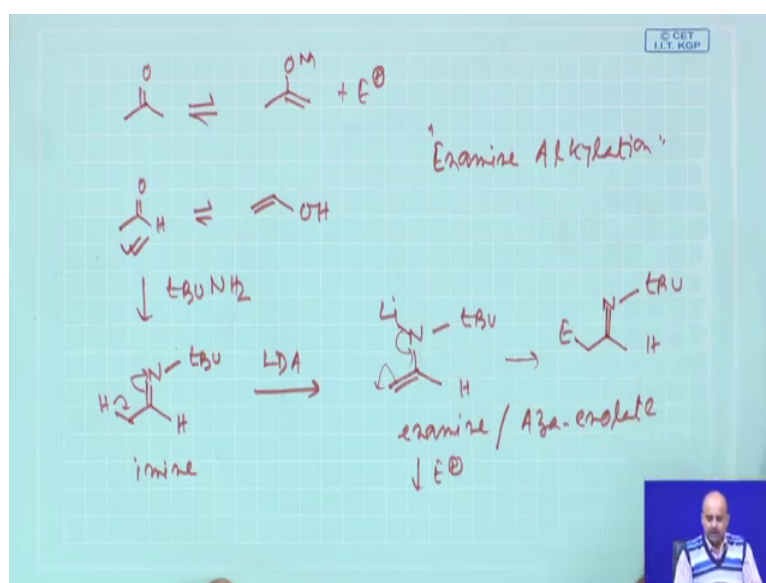 © CET
I.I.T. KGP
O
OM
+ E⊕
"Enamine Alkylation"
O
H
⇌
OH
↓ tBuNH2
N
tBu
H
H
imine
LDA
Li
N
tBu
H
enamine / Aza-enolate
↓ E⊕
→
E
N
tBu
H